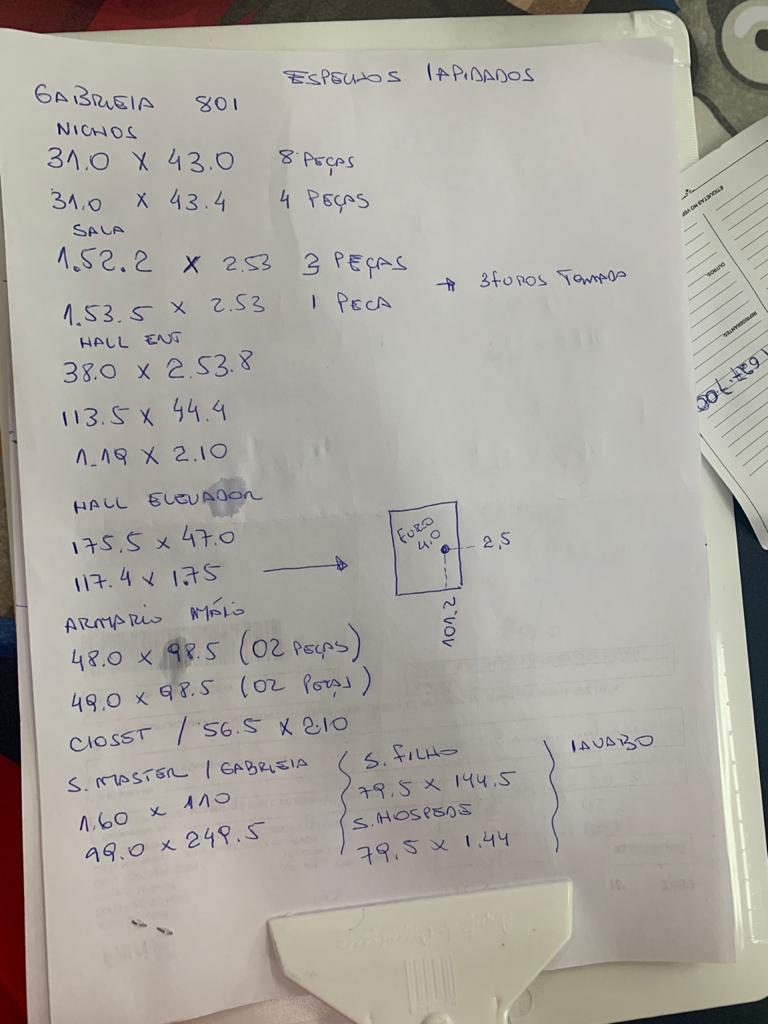 ESPELHOS LAPIDADOS
GABRIELA 801
NICHOS
31.0 X 43.0 8 PEÇAS
31.0 X 43.4 4 PEÇAS
SALA
1.52.2 X 2.53 3 PEÇAS
1.53.5 X 2.53 1 PECA → 3 FUROS TOMADA
HALL ENT
38.0 X 2.53.8
113.5 X 44.4
1.19 X 2.10
HALL ELEVADOR
175.5 X 47.0
117.4 X 1.75 →
FURO
4.0
2,5
101.2
ARMARIO
48.0 X 98.5 (02 PEÇAS)
49.0 X 98.5 (02 PEÇAS)
CLOSET / 56.5 X 2.10
S. MASTER / GABRIELA
1.60 X 110
99.0 X 249.5
S. FILHO
79.5 X 144.5
S. HOSPEDE
79.5 X 1.44
LAVABO
ETIQUETAS NO VER
OUTROS:
REFRIGERANTES: